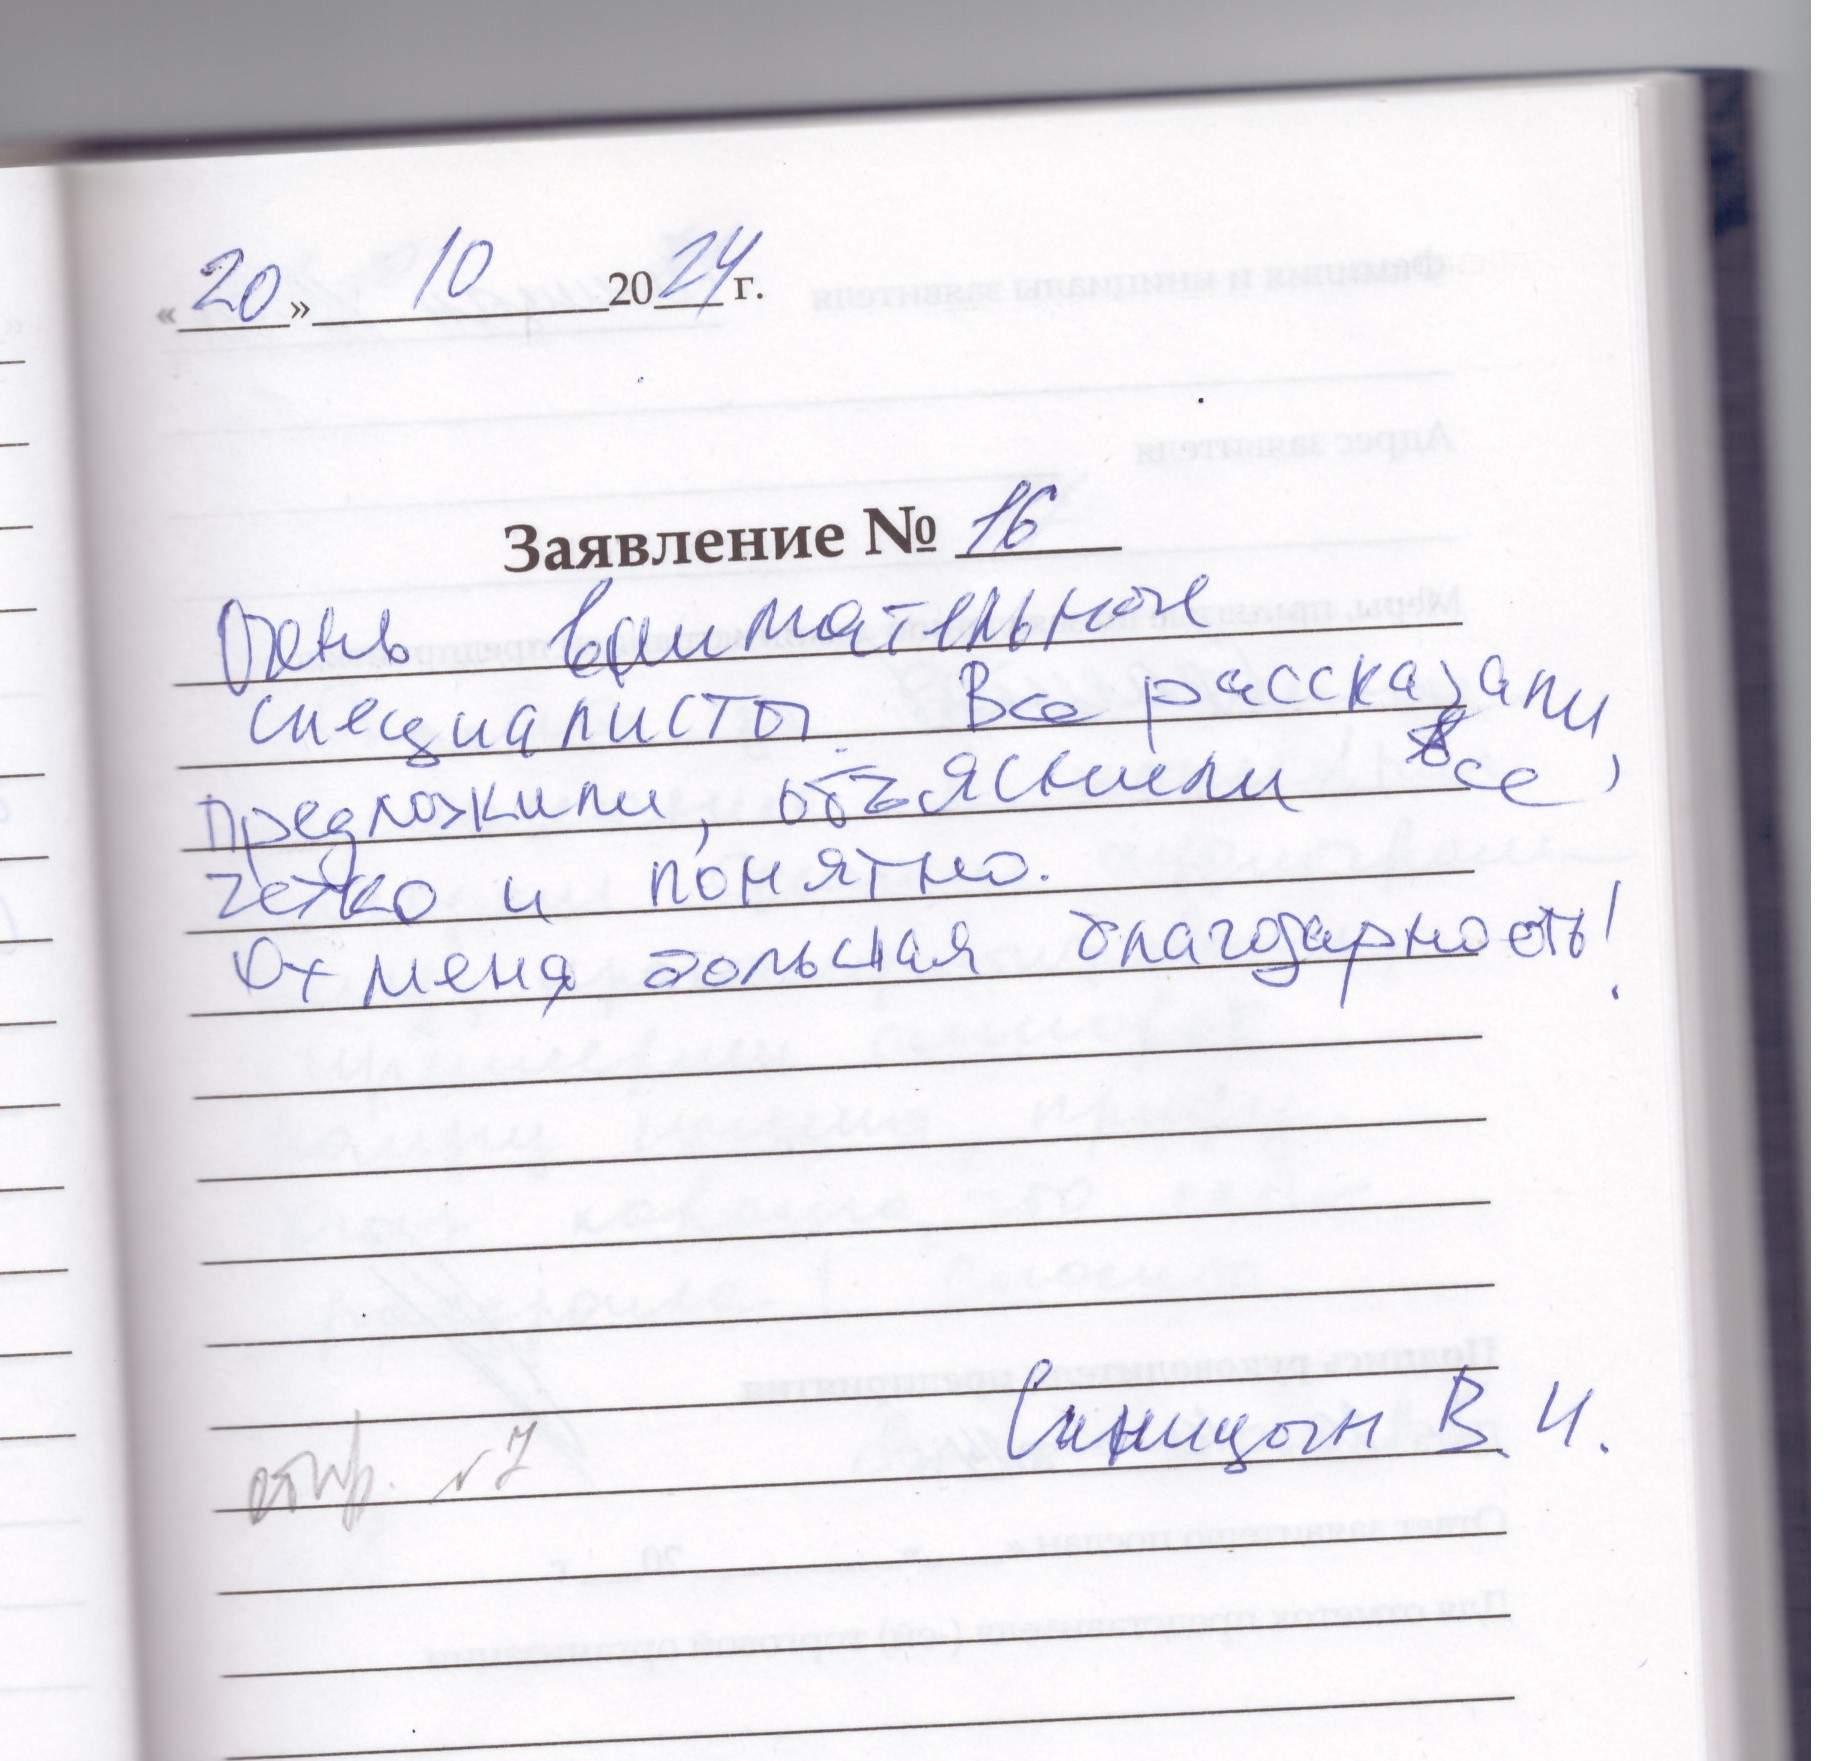 «20» 10 2024 г.
Заявление № 16
Очень внимательные
специалисты. Все рассказали,
предложили, объяснили все
четко и понятно.
От меня большая благодарность!
Синицын В. И.